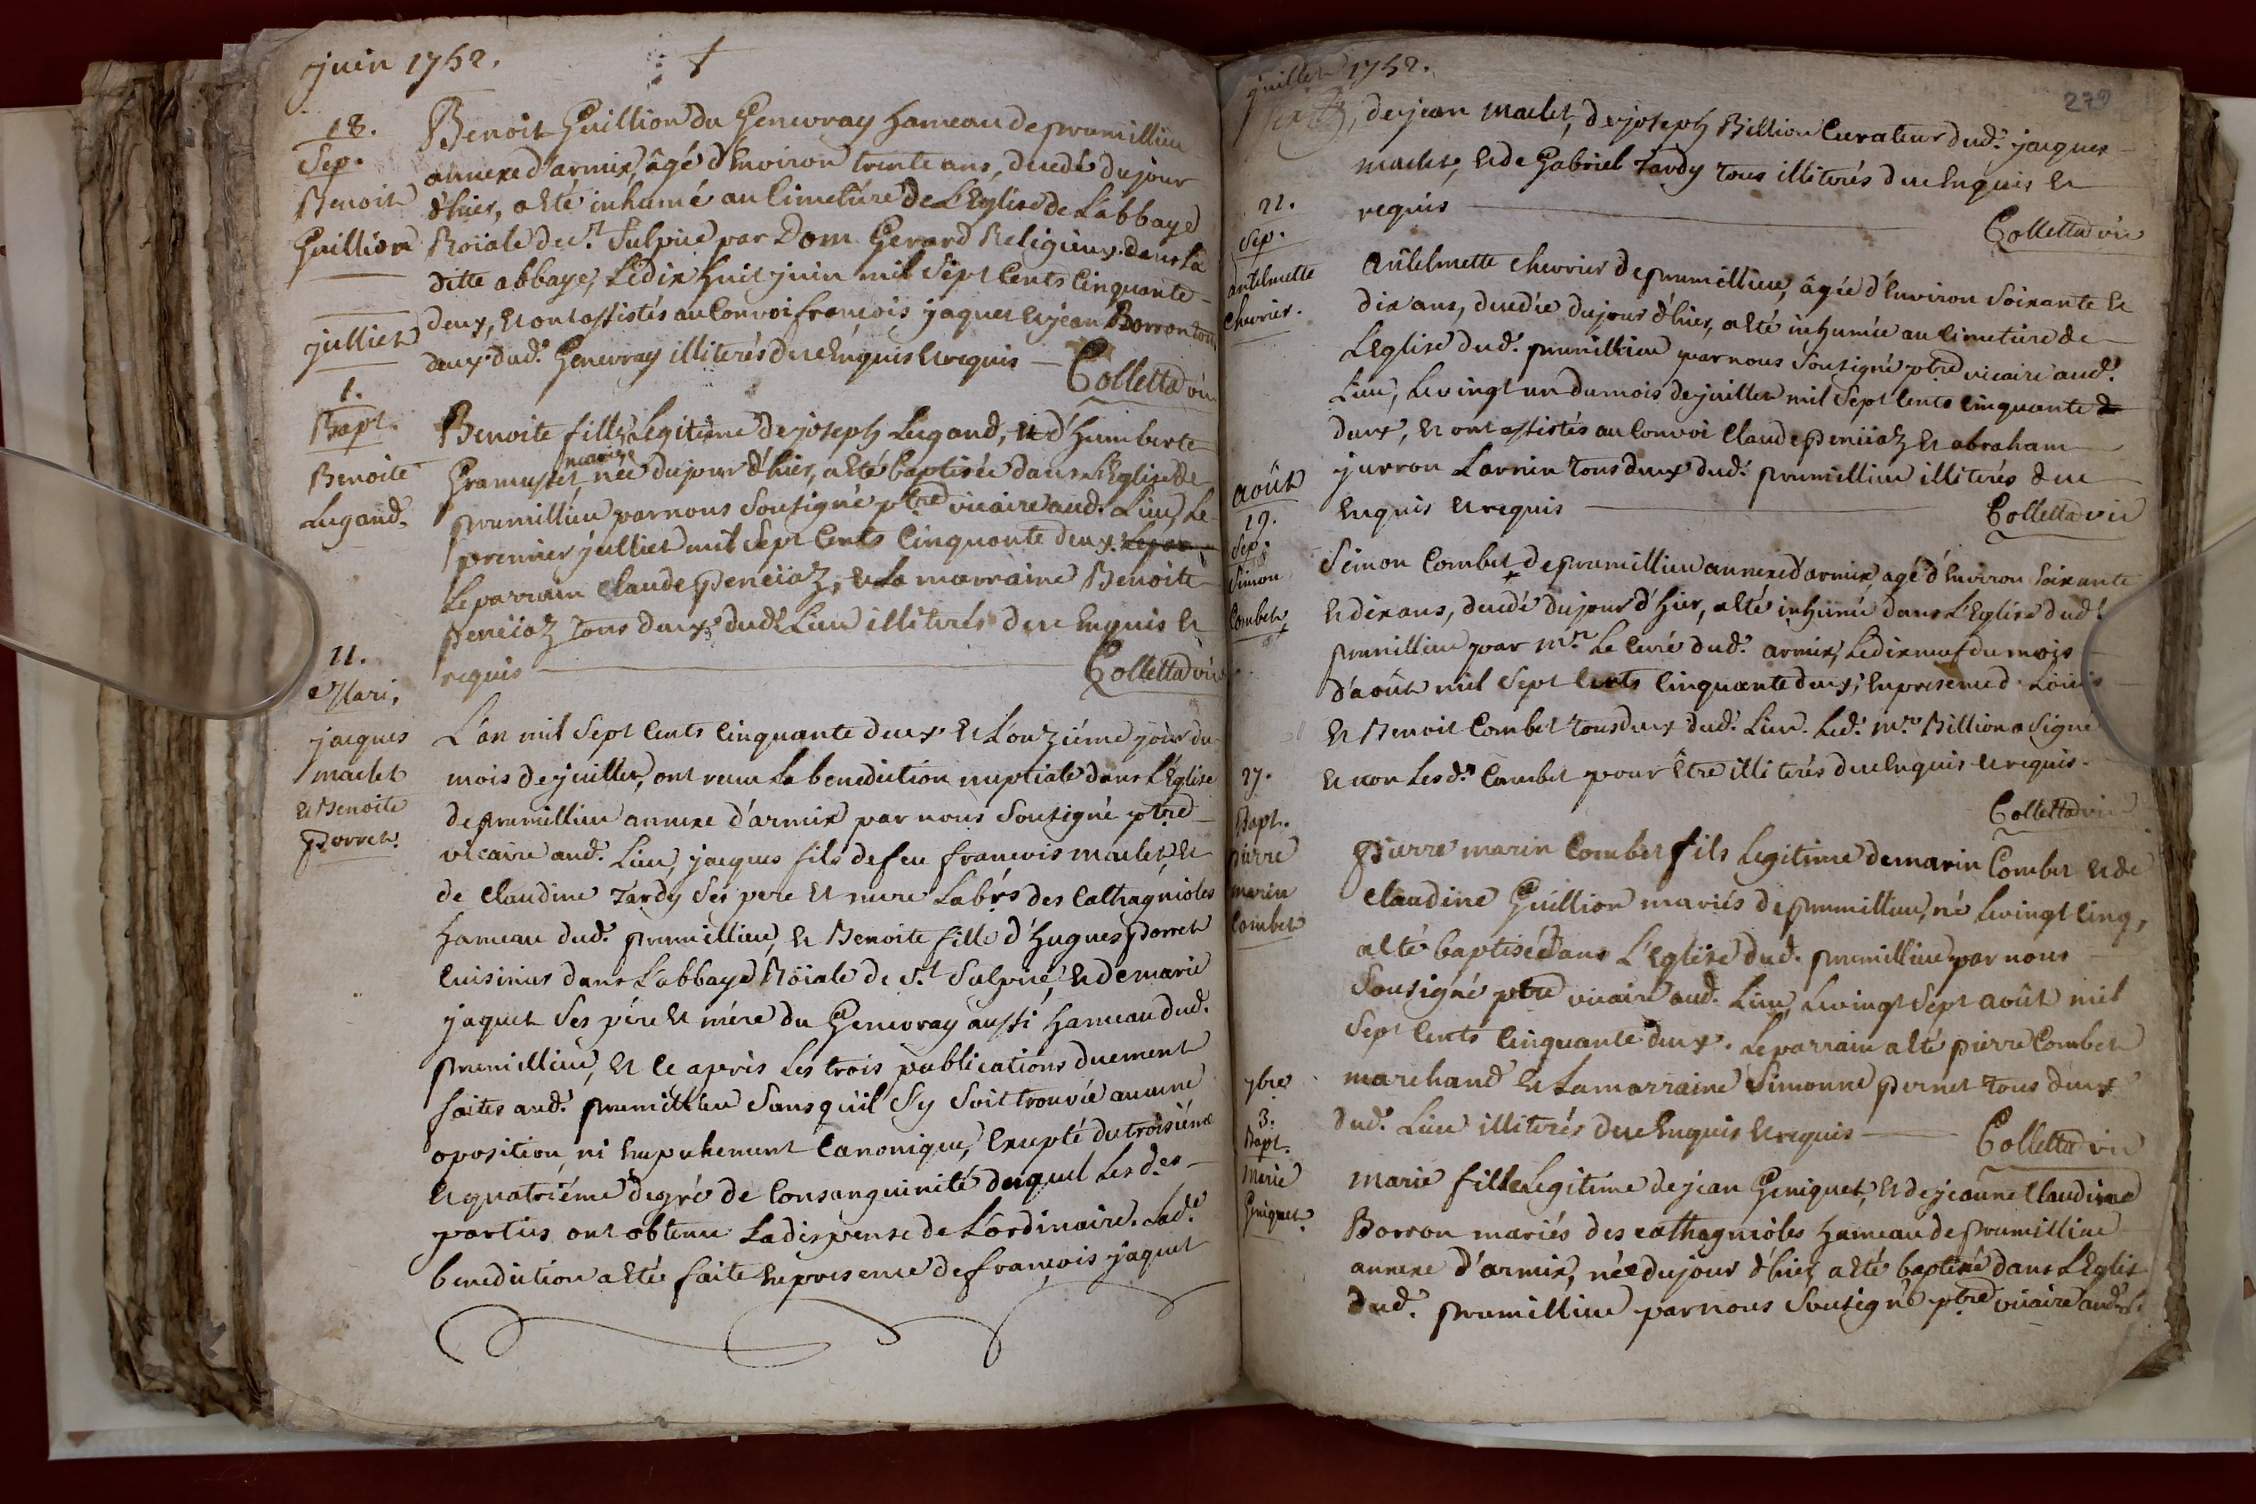 juin 1752.
18.
Sep.
Benoit
Guillion
Benoit Guillion du Genevray hameau de prumillieu
annexe d'armix, âgé d'Environ trente ans, decedé du jour
d'hier, a été inhumé au Cimetiére de L'Eglise de L'abbaye
Roïale de St. Sulpice par Dom Gerard Religieux dans la
ditte abbaye, Le dix huit juin mil Sept Cents Cinquante
deux, Et ont assistés au Convoi françois jaquet Et jean Borron tous
deux dud. Genevray illiterés de ce Enquis Et requis
Colletta vic
julliet
1.
Bapt.
Benoite
Lugand.
Benoite fille Legitime de joseph Lugand, Et d'humberte
mariés
Gramusset, née du jour d'hier, a été baptisée dans L'Eglise de
prumillieu par nous Soutigné ptre vicaire aud. Lieu, Le
premier julliet mil Sept Cents Cinquante deux.
Le parrain Claude peneïaz, Et La marraine Benoite
peneïaz tous deux dud. Lieu illiterés de ce Enquis Et
requis
Colletta vic
11.
Mari,
jacques
maclet
Et Benoite
porret.
L'an mil Sept Cents Cinquante deux Et L'onziéme jour du
mois de juillet, ont recu La benediction nuptiale dans L'Eglise
de prumillieu annexe d'armix par nous Soutigné ptre
vicaire aud. Lieu, jacques fils de feu françois maclet, Et
de Claudine Tardy Ses pere Et mere Labrs des Cathagnioles
hameau dud. prumillieu, Et Benoite fille d'hugues porret
Cuisinier dans L'abbaye Roïale de St. Sulpice, Et de marie
jaquet Ses pére Et mére du Genevray aussi hameau dud.
prumillieu, Et ce aprés Les trois publications duement
faites aud. prumillieu Sans qu'il S'y Soit trouvée aucune
oposition, ni Empechement Canonique, Excepté du troisiéme
Et quatriéme degré de Consanguinité duquel Lesd.es
parties ont obtenu La dispense de L'ordinaire. Lad.e
benediction a été faite En presence de françois jaquet
juillet 1752.
279
de jean maclet, de joseph Billion Curateur dud. jacques
maclet, Et de Gabriel Tardy tous illiterés de ce Enquis Et
requis
Colletta vic
21.
Sep.
antelmette
Chevrier.
Antelmette Chevrier de prumillieu, âgée d'Environ Soixante Et
dix ans, decedée du jour d'hier, a été inhumée au Cimetiére de
L'Eglise dud. prumillieu par nous Soutigné ptre vicaire aud.
Lieu, Le vingt un du mois de juillet mil Sept Cents Cinquante
deux, Et ont assistés au Convoi Claude peneïaz Et abraham
jurron Larrin tous deux dud. prumillieu illiterés de ce
Enquis Et requis
Colletta vic
aoút
19.
Sep.
Simon
Combet
Simon Combet de prumillieu annexe d'armix, agé d'Environ Soixante
Et dix ans, decedé du jour d'hier, a été inhumé dans L'Eglise dud.
prumillieu par Mre Le Curé dud. armix, Le dix neuf du mois
d'août mil Sept Cents Cinquante deux, En presence de Loüis
Et Benoit Combet tous deux dud. Lieu. Led. Mre Billion a Signé
Et non Lesd.s Combet pour Être illiterés de ce Enquis Et requis.
Colletta vic
27.
Bapt.
pierre
marin
Combet
Pierre marin Combet fils Legitime de marin Combet Et de
Claudine Guillion mariés de prumillieu, né Le vingt Cinq,
a été baptisé dans L'Eglise dud. prumillieu par nous
Soutigné ptre vicaire aud. Lieu, Le vingt Sept août mil
Sept Cents Cinquante deux. Le parrain a été pierre Combet
marchand Et La marraine Simonne pernet tous deux
dud. Lieu illiterés de ce Enquis Et requis
Colletta vic
7bre
3.
Bapt.
Marie
Geniquet.
Marie fille Legitime de jean Geniquet, Et de jeanne Claudine
Borron mariés des cathagnioles hameau de prumillieu
annexe d'armix, née du jour d'hier, a été baptisée dans L'Eglise
dud. prumillieu par nous Soutigné ptre vicaire aud.